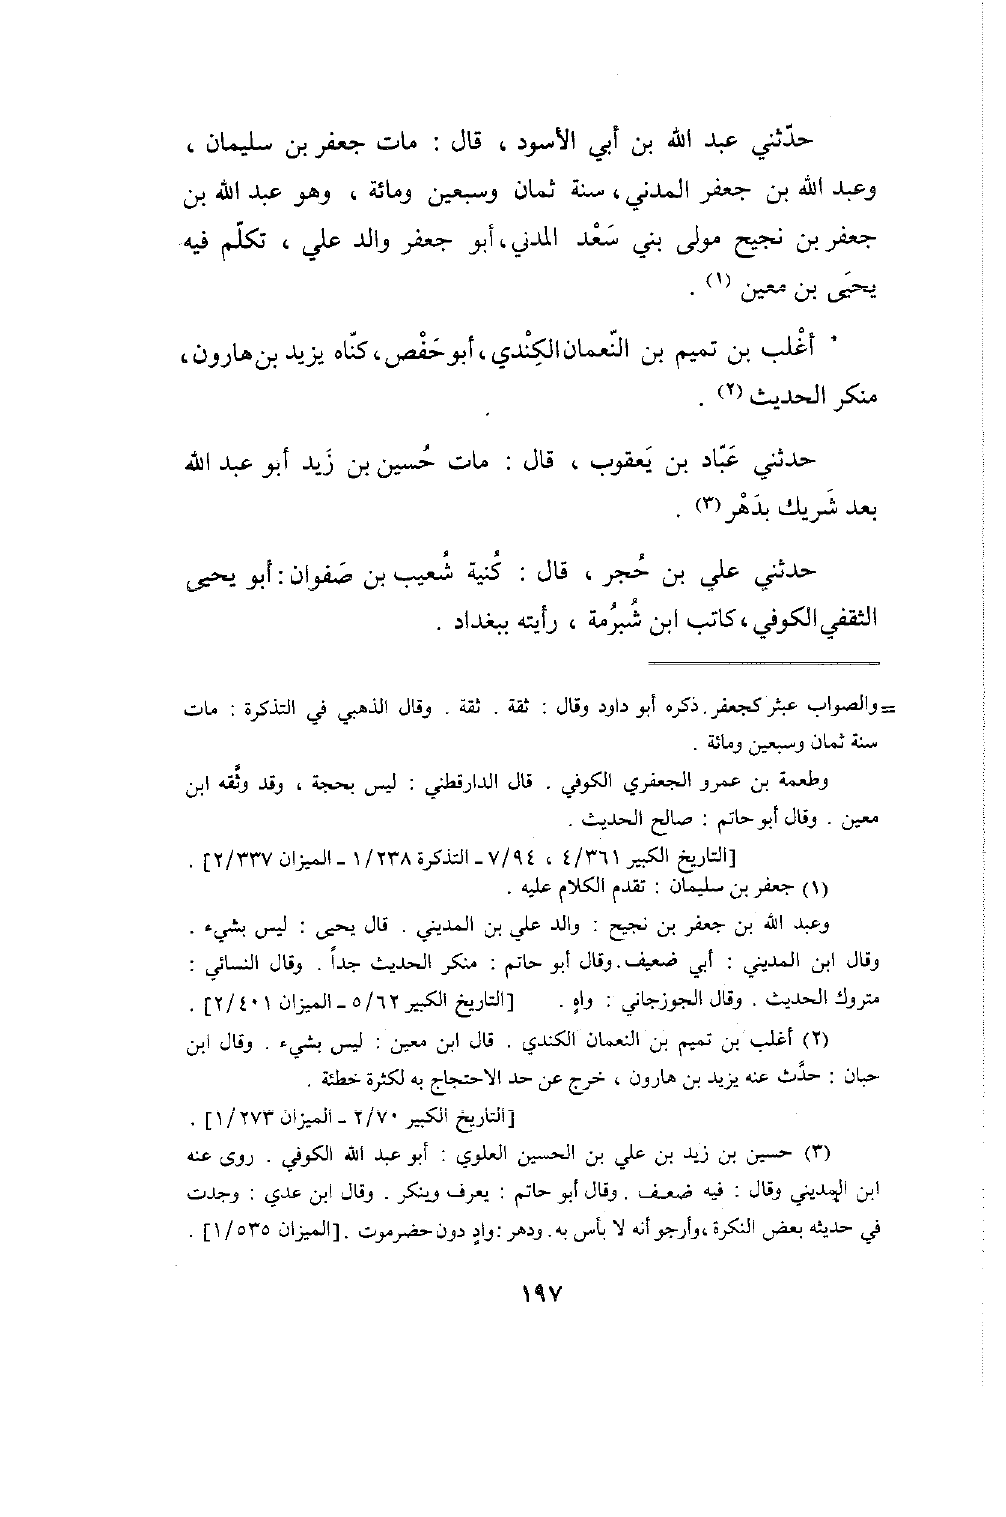 حدّثني عبد الله بن أبي الأسود ، قال : مات جعفر بن سليمان ،
وعبد الله بن جعفر المدني ، سنة ثمان وسبعين ومائة ، وهو عبد الله بن
جعفر بن نجيح مولى بني سَعْد المدني ، أبو جعفر والد علي ، تكلّم فيه
يحيَى بن معين (١) .
أغْلب بن تميم بن النّعمان الكِنْدي ، أبو حَفْص ، كنّاه يزيد بن هارون ،
منكر الحديث (٢) .
حدثني عَبّاد بن يَعقوب ، قال : مات حُسين بن زَيد أبو عبد الله
بعد شَريك بدَهْر (٣) .
حدثني علي بن حُجر ، قال : كُنية شُعيب بن صَفوان : أبو يحيى
الثقفي الكوفي ، كاتب ابن شُبرُمة ، رأيته ببغداد .
= والصواب عبثر كجعفر . ذكره أبو داود وقال : ثقة . ثقة . وقال الذهبي في التذكرة : مات
سنة ثمان وسبعين ومائة .
وطعمة بن عمرو الجعفري الكوفي . قال الدارقطني : ليس بحجة ، وقد وثَّقه ابن
معين . وقال أبو حاتم : صالح الحديث .
[التاريخ الكبير ٤/٣٦١ ، ٧/٩٤ ـ التذكرة ١/٢٣٨ ـ الميزان ٢/٣٣٧] .
(١) جعفر بن سليمان : تقدم الكلام عليه .
وعبد الله بن جعفر بن نجيح : والد علي بن المديني . قال يحيى : ليس بشيء .
وقال ابن المديني : أبي ضعيف . وقال أبو حاتم : منكر الحديث جداً . وقال النسائي :
متروك الحديث . وقال الجوزجاني : واهٍ . [التاريخ الكبير ٥/٦٢ ـ الميزان ٢/٤٠١] .
(٢) أغلب بن تميم بن النعمان الكندي . قال ابن معين : ليس بشيء . وقال ابن
حبان : حدَّث عنه يزيد بن هارون ، خرج عن حد الاحتجاج به لكثرة خطئة .
[التاريخ الكبير ٢/٧٠ ـ الميزان ١/٢٧٣] .
(٣) حسين بن زيد بن علي بن الحسين العلوي : أبو عبد الله الكوفي . روى عنه
ابن المديني وقال : فيه ضعف . وقال أبو حاتم : يعرف وينكر . وقال ابن عدي : وجدت
في حديثه بعض النكرة ، وأرجو أنه لا بأس به . ودهر : وادٍ دون حضرموت . [الميزان ١/٥٣٥] .
١٩٧